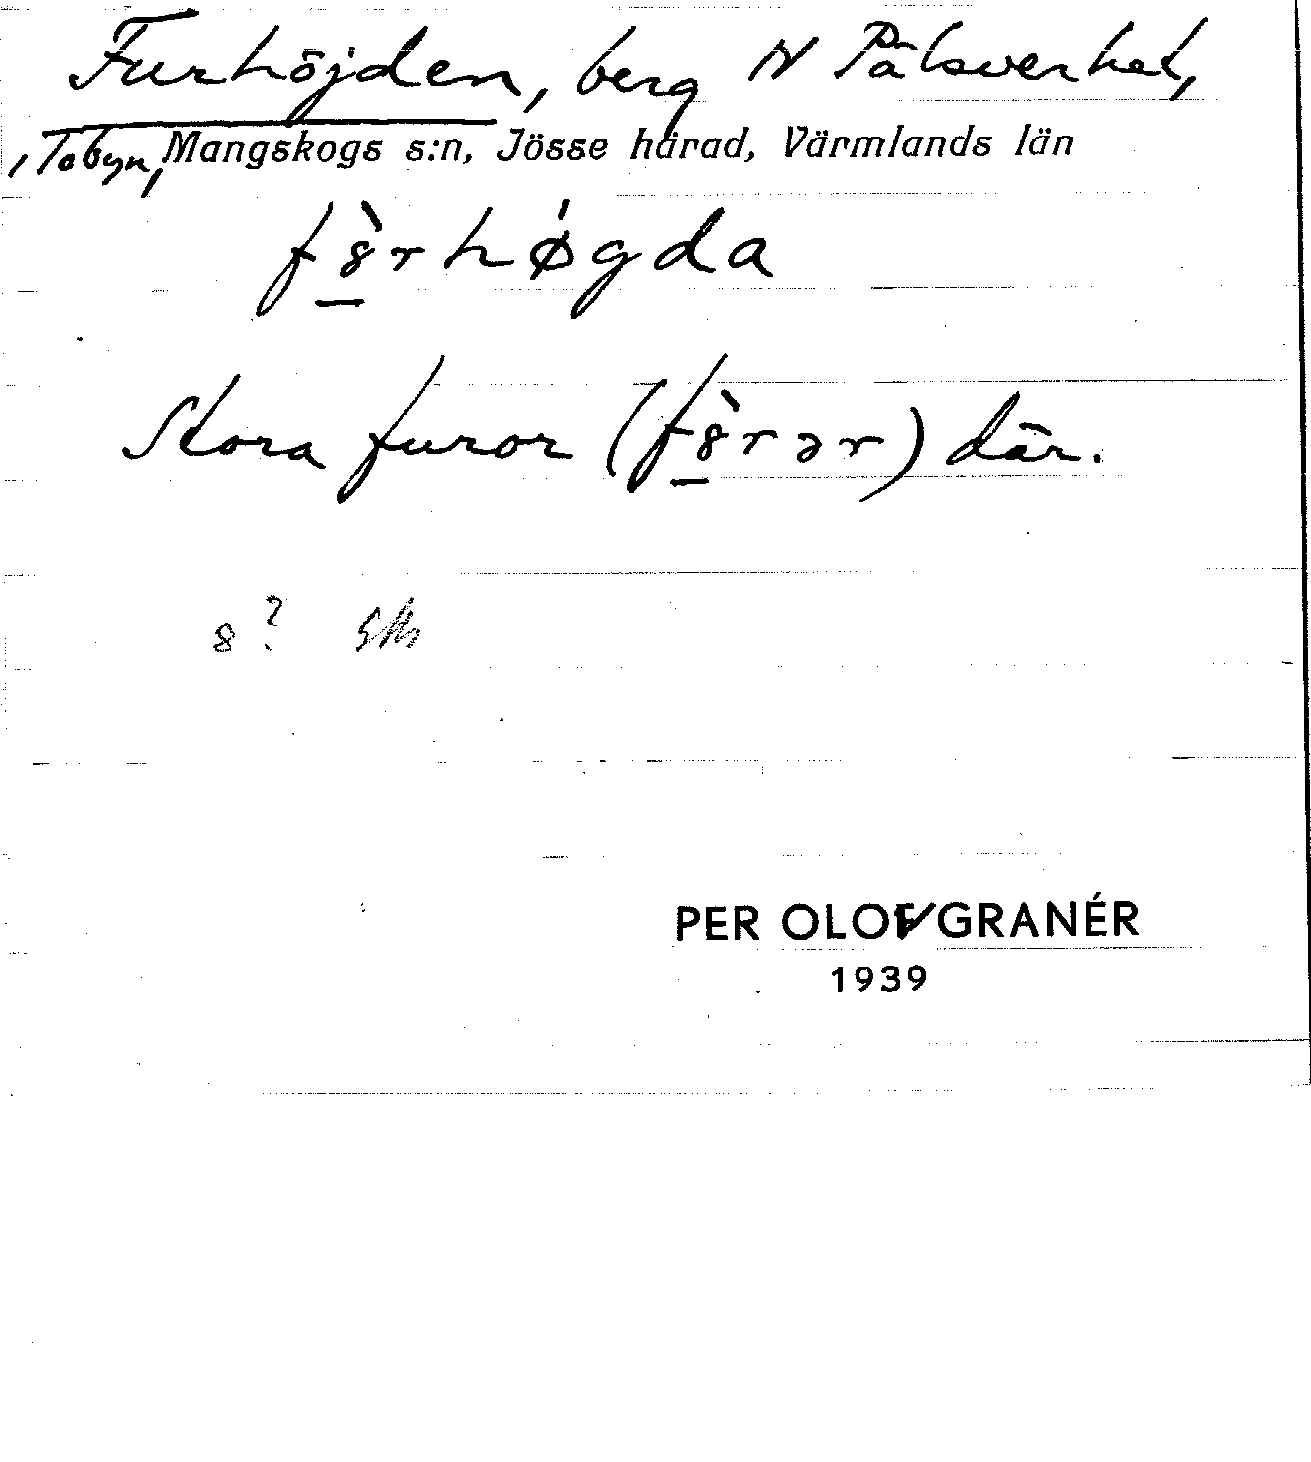 Furhöjden, berg N Pålsverket,
, Tobyn, Mangskogs s:n, Jösse härad, Värmlands län
f8̲̀rhǿgda
Stora furor (f8̲̀rər) där.
8?
PER OLOF GRANÉR
1939